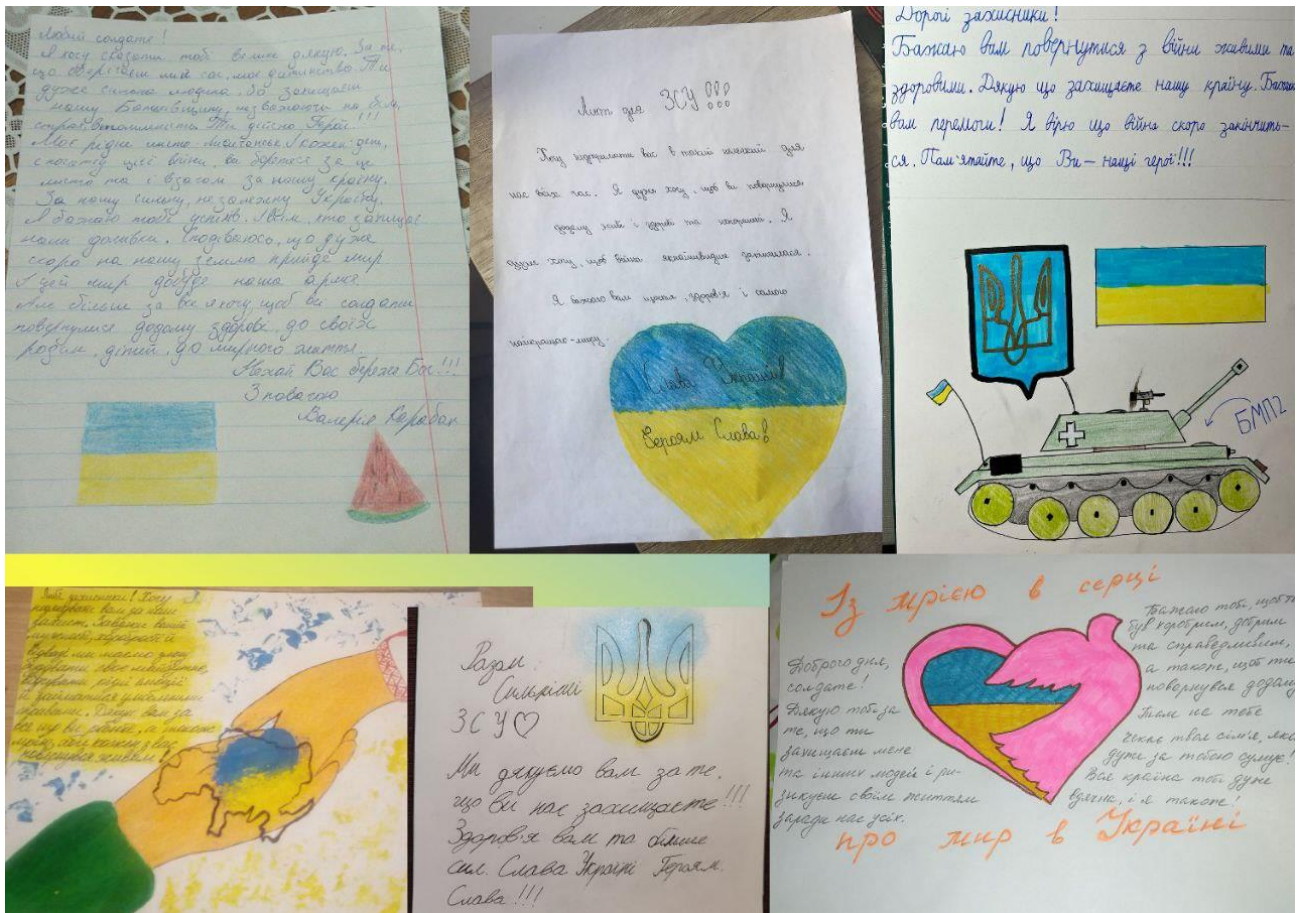 Любий солдате!
Я хочу сказати тобі велике дякую. За те,
що оберігаєш мій сон, моє дитинство. Ти
дуже сильна людина, бо захищаєш
нашу Батьківщину, незважаючи на біль,
страх, втому. Ти дійсно Герой!!!
Моє рідне місто. І кожен день,
з початку цієї війни, ви боретеся за це
місто та і взагалі за нашу країну.
За нашу сильну, незалежну Україну.
Я бажаю тобі успіхів. І всім, хто захищає
наші домівки. Сподіваюсь, що дуже
скоро на нашу землю прийде мир
І цей мир здобуде наша армія!
Але більш за все я хочу щоб всі солдати
повернулися додому здорові, до своїх
родин, дітей, до мирного життя.
Нехай Вас береже Бог!!!
З повагою
Валерія Коробак
Лист для ЗСУ!!!
Хочу підтримати вас в такий нелегкий для
нас всіх час. Я дуже хочу, щоб ви повернулися
додому живі і здорові та неушкоджені. Я
дуже хочу, щоб війна якнайшвидше закінчилася.
Я бажаю вам щастя, здоров'я і самого
найкращого-миру.
Слава Україні!
Героям Слава!
Дорогі захисники!
Бажаю вам повернутися з війни живими та
здоровими. Дякую що захищаєте нашу країну. Бажаю
вам перемоги! Я вірю що війна скоро закінчить-
ся. Пам'ятайте, що Ви - наші герої!!!
БМП2
захисники! Хочу
подякувати вам за наше
життя. Завдяки вашій
мужності, хоробрості й
відвазі ми маємо змогу
будувати своє майбутнє,
й займатися улюбленими
справами. Дякую вам за
все що ви робите, а також
хочу кожен з вас
повернувся живим!
Разом
Сильніші
ЗСУ♡
Ми дякуємо вам за те,
що ви нас захищаєте!!!
Здоров'я вам та більше
сил. Слава Україні Героям
Слава!!!
Із мрією в серці
Доброго дня,
солдате!
Дякую тобі за
те, що ти
захищаєш мене
та інших людей і ри-
зикуєш своїм життям
заради нас усіх.
Бажаю тобі, щоб ти
був хоробрим, добрим
та справедливим,
а також, щоб ти
повернувся додому
Там не тебе
чекає твоя сім'я, яка
дуже за тобою сумує!
Вся країна тобі дуже
вдячна, і я також!
про мир в Україні